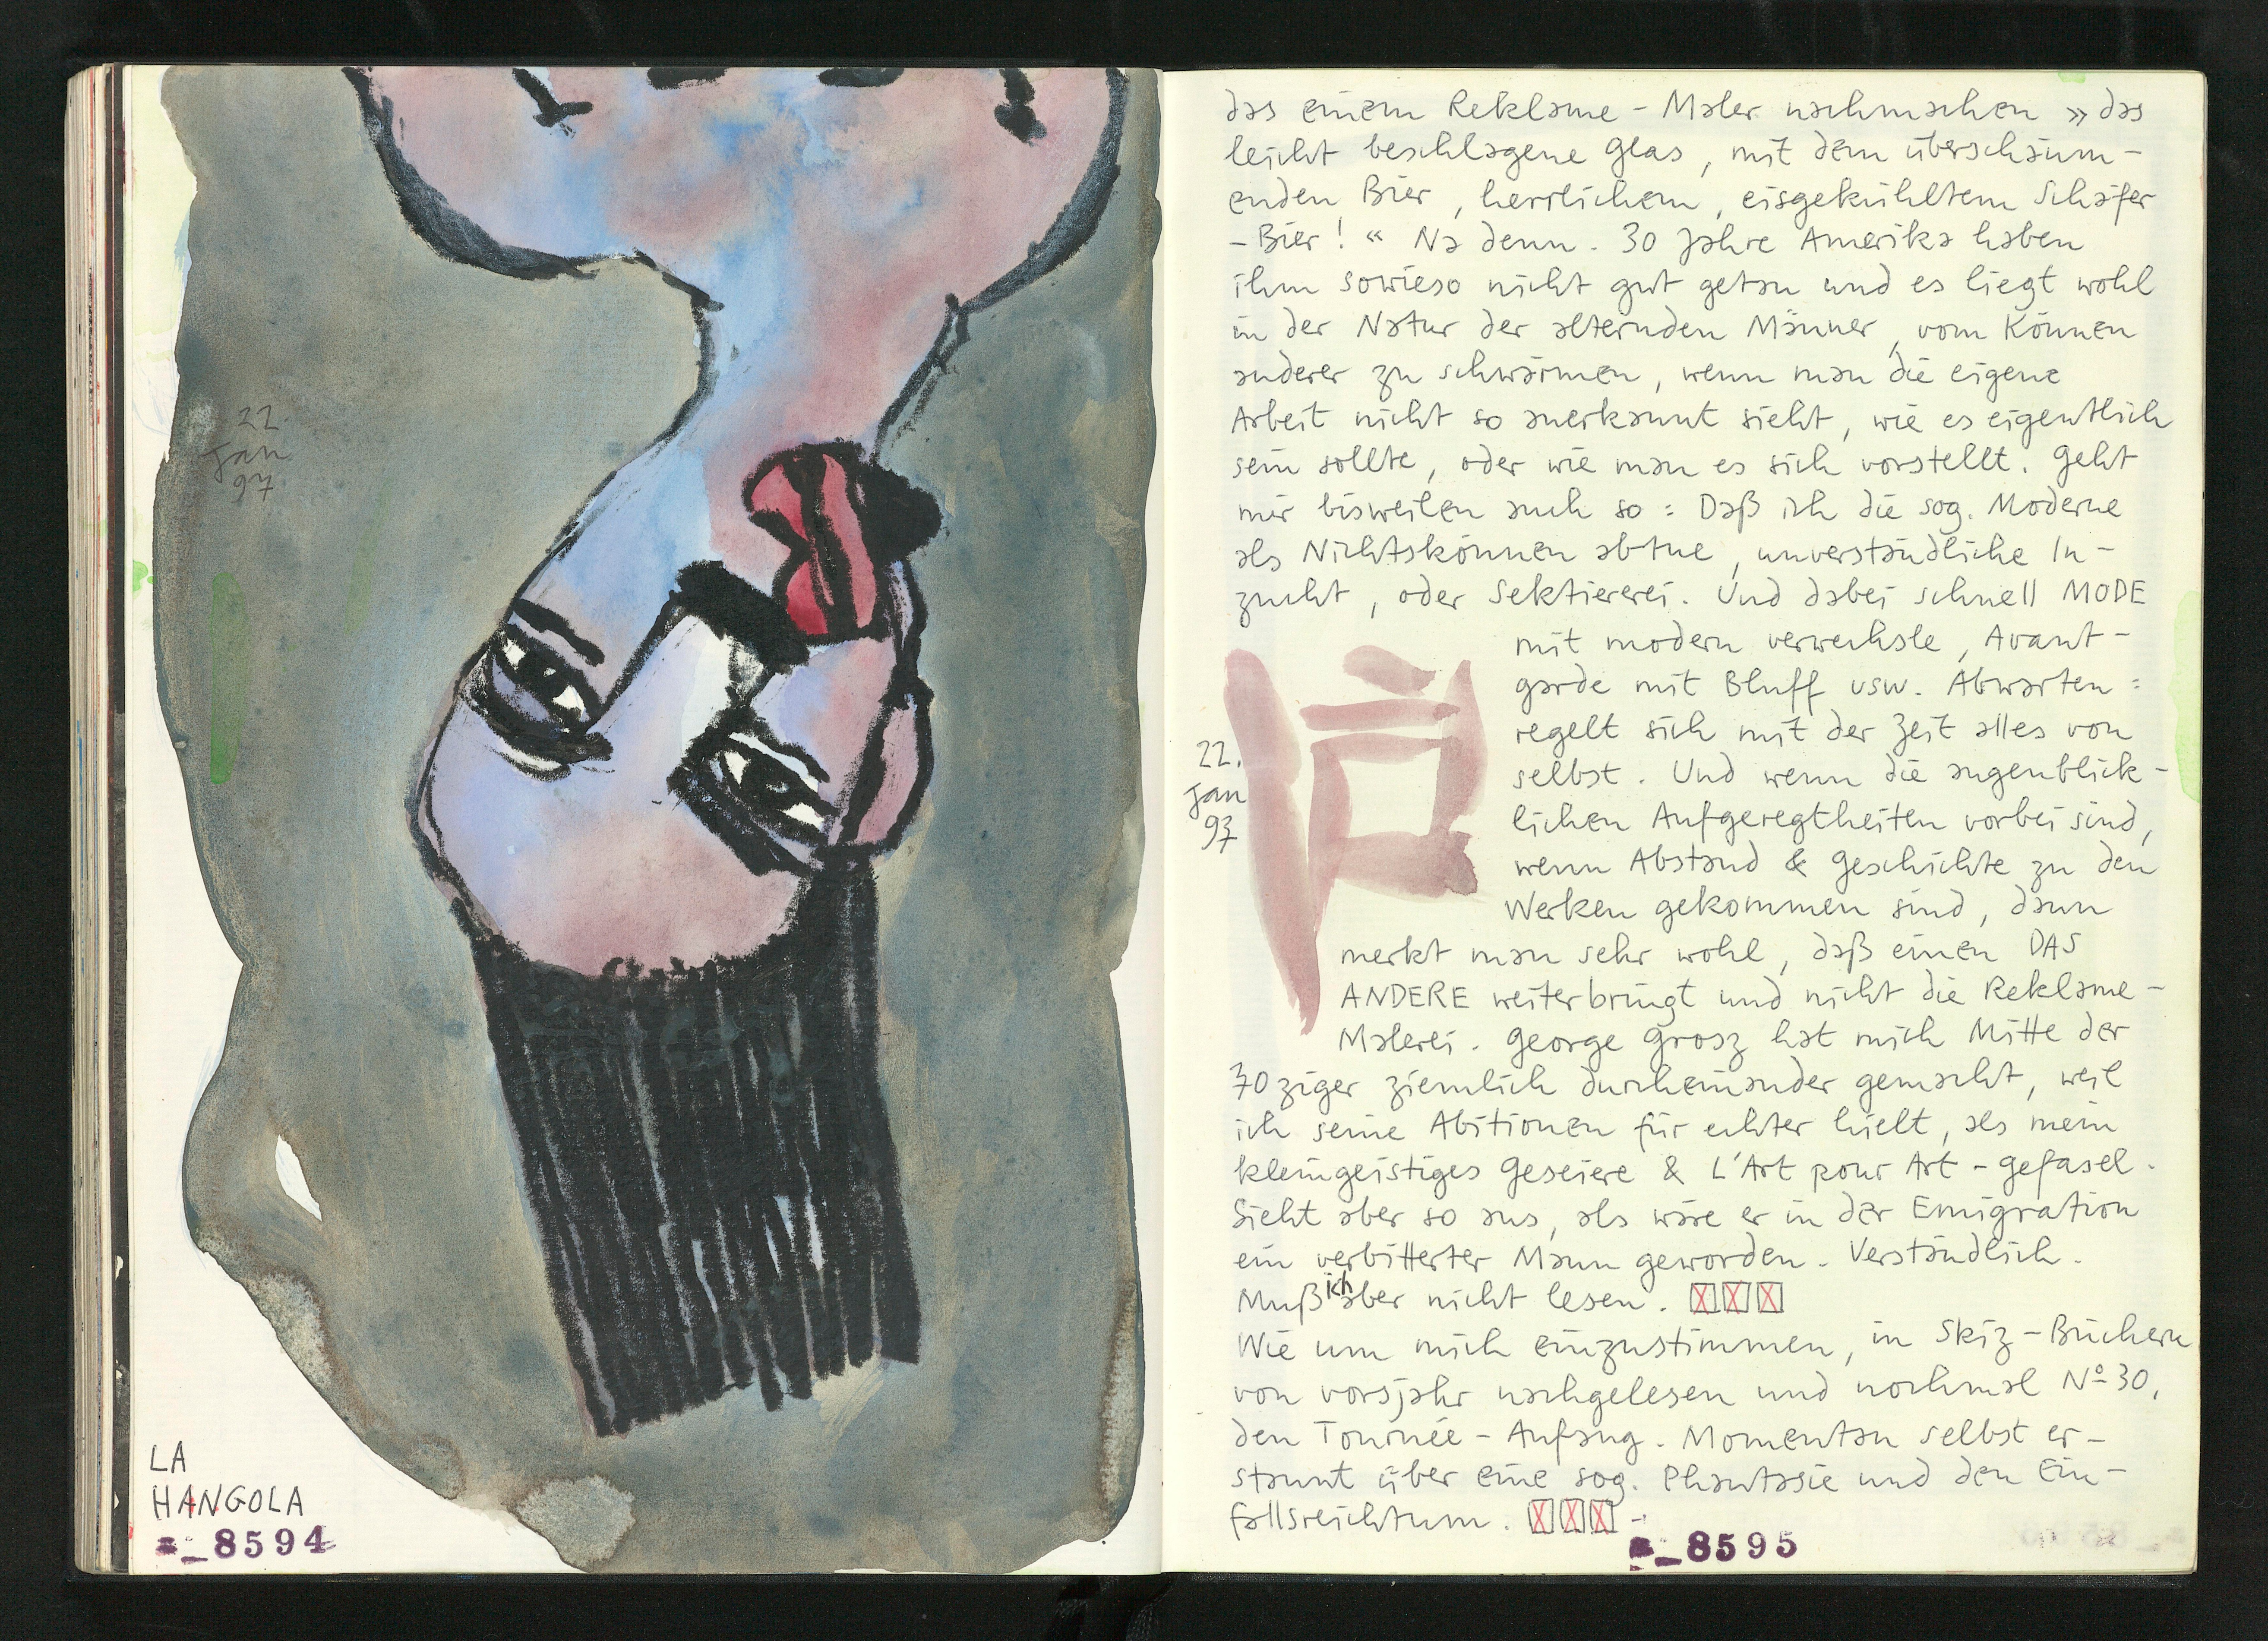 22.
Jan
97
LA
HANGOLA
a_8594
das einem Reklame-Maler nachmachen »das
leicht beschlagene Glas, mit dem überschäum-
enden Bier, herrlichem, eisgekühltem Schäfer
-Bier!« Na denn. 30 Jahre Amerika haben
ihm sowieso nicht gut getan und es liegt wohl
in der Natur der alternden Männer, vom Können
anderer zu schwärmen, wenn man die eigene
Arbeit nicht so anerkannt sieht, wie es eigentlich
sein sollte, oder wie man es sich vorstellt. Geht
mir bisweilen auch so: Daß ich die sog. Moderne
als Nichtskönnen abtue, unverständliche In-
zucht, oder Sektiererei. Und dabei schnell MODE
mit modern verwechsle, Avant-
garde mit Bluff usw. Abwarten:
regelt sich mit der Zeit alles von
selbst. Und wenn die augenblick-
lichen Aufgeregtheiten vorbei sind,
wenn Abstand & Geschichte zu den
Werken gekommen sind, dann
merkt man sehr wohl, daß einen DAS
ANDERE weiterbringt und nicht die Reklame-
Malerei. George Grosz hat mich Mitte der
70ziger ziemlich durcheinander gemacht, weil
ich seine Abitionen für echter hielt, als mein
kleingeistiges Geseiere & L'Art pour Art-gefasel.
Sieht aber so aus, als wäre er in der Emigration
ein verbitterter Mann geworden. Verständlich.
Muß ich aber nicht lesen.
Wie um mich einzustimmen, in Skiz-Büchern
von vorsjahr nachgelesen und nochmal Nº30,
den Tournée-Anfang. Momentan selbst er-
staunt über eine sog. Phantasie und den Ein-
fallsreichtum.
22.
Jan
97
a_8595